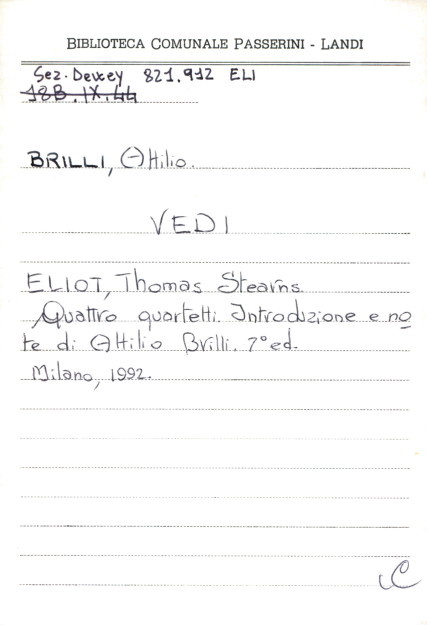 BIBLIOTECA COMUNALE PASSERINI - LANDI
Sez. Dewey 821.912 ELI
18B.IX.44
BRILLI, Attilio.
VEDI
ELIOT, Thomas Stearns.
Quattro quartetti. Introduzione e no
te di Attilio Brilli. 7° ed.
Milano, 1992.
C